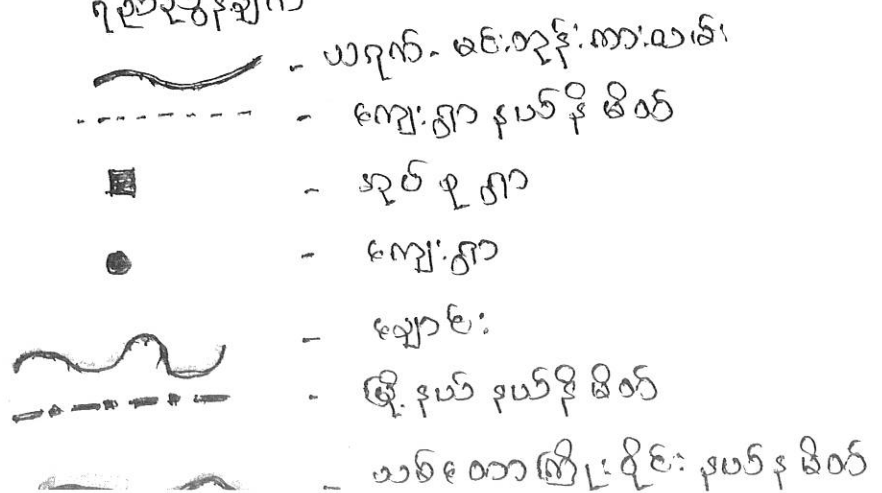 ရည်ညွှန်းချက်
- ယာဂုက်- မင်းဘူန်းကားလမ်း
- ကျေးရွာ နယ်နိမိတ်
- အုပ်စုရွာ
- ကျေးရွာ
- ချောင်း
- မြို့နယ် နယ်နိမိတ်
- သစ်တောကြိုးဝိုင်း နယ်နမိတ်